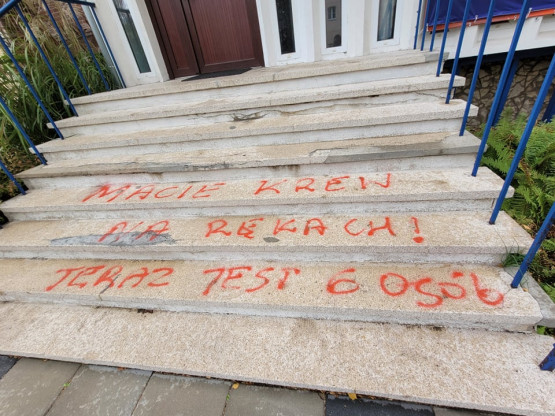 MACIE KREW
NA RĘKACH!
TERAZ JEST 6 OSÓB